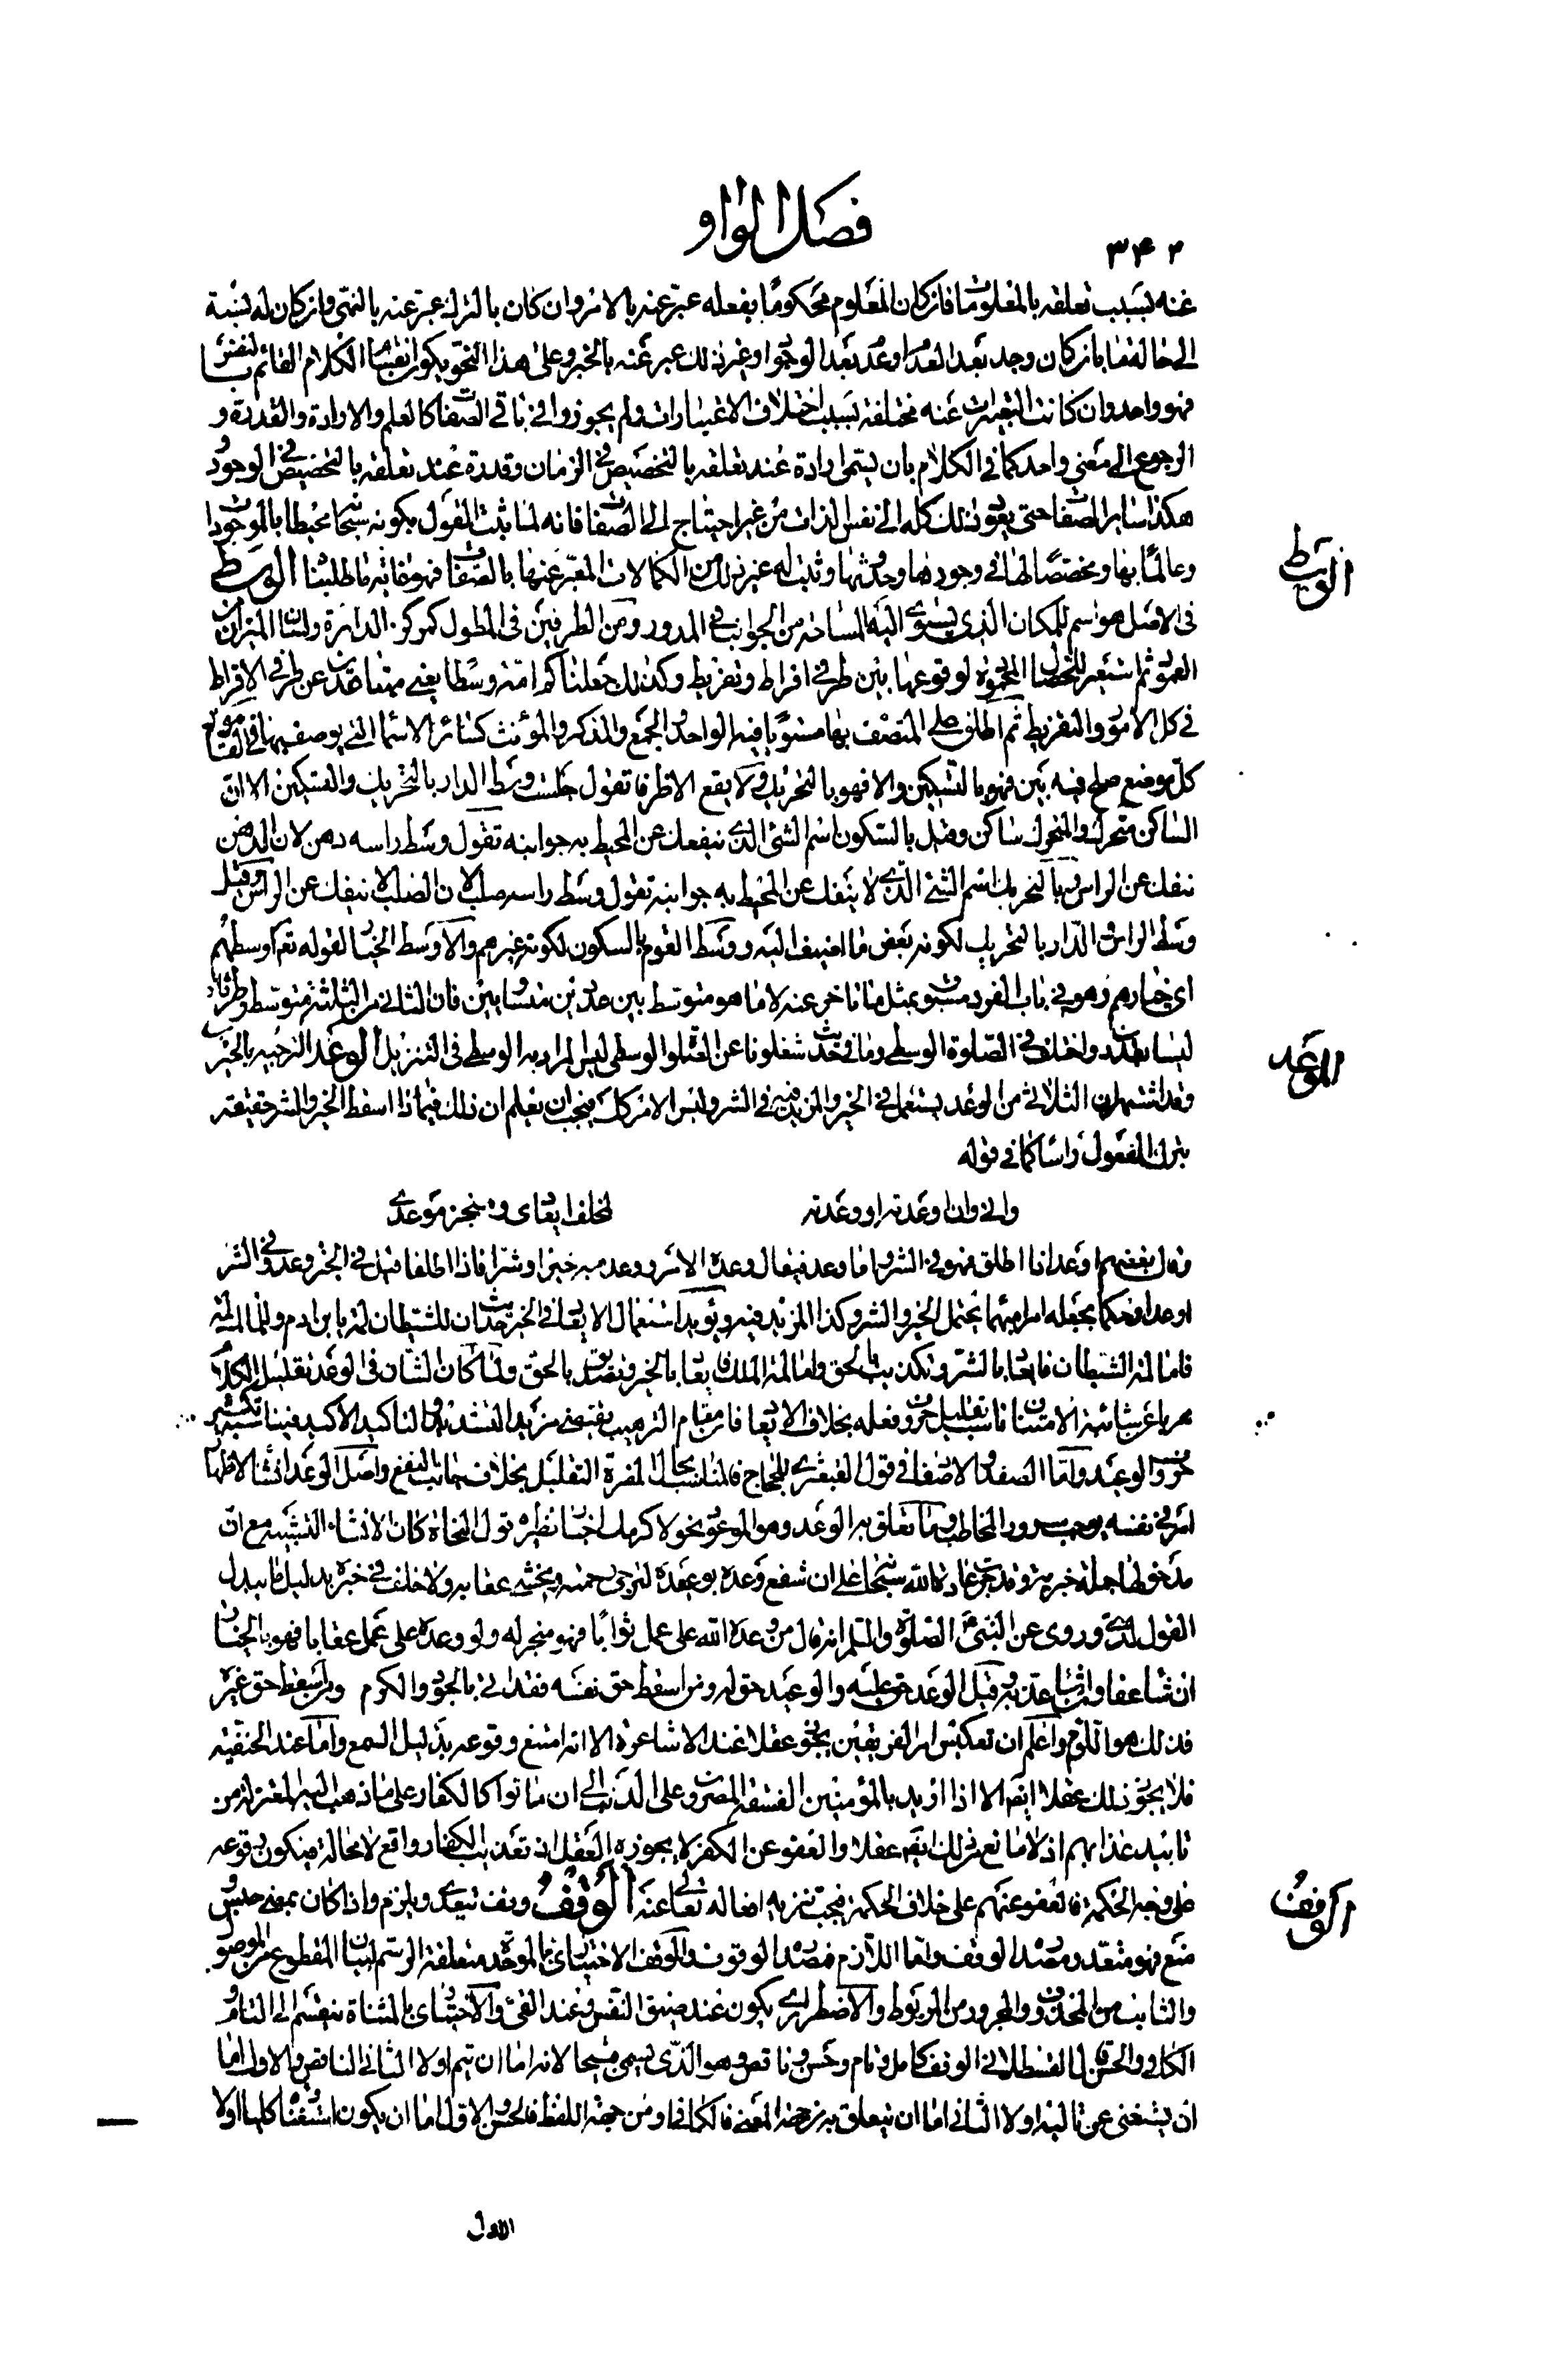 فصل الواو
٣٤٢
عنه بسبب تعلقه بالمعلومات فان كان المعلوم محكوما بفعله عبر عنه بالامر وان كان بالترك عبر عنه بالنهى وان كان له نسبة
الى حالة ما بان كان وجد بعد العدم او عدم بعد الوجود او غير ذلك عبر عنه بالخبر وعلى هذا النحو يكون انقسام الكلام القائم بالنفس
فهو واحد وان كانت التعبيرات عنه مختلفة بسبب اختلاف الاعتبارات ولم يجوزوا فى باقى الصفات كالعلم والارادة والقدرة و
الرجوع الى معنى واحد كما فى الكلام بان يسمى ارادة عند تعلقه بالتخصيص فى الزمان وقدرة عند تعلقه بالتخصيص فى الوجود
هكذا سائر الصفات حتى يعود ذلك كله الى نفس الذات من غير احتياج الى الصفات فانه لما ثبت القول بكونه سبحانه محيطا بالموجودات
وعالما بها ومخصصا لها فى وجودها وحدوثها وثبت له غير ذلك من الكمالات المعبر عنها بالصفات فهو غاية ما طلبنا الوسط
فى الاصل هو اسم للمكان الذى يستوى اليه المساحة من الجوانب فى المدور ومن الطرفين فى المطول كمركز الدائرة ولسان الميزان من
العمود ثم استعير للخصال المحمودة لوقوعها بين طرفى افراط وتفريط وكذلك جعلناكم امة وسطا يعنى متباعدين عن طرفى الافراط
فى كل الامور والتفريط ثم اطلق على المتصف بها مستويا فيه الواحد والجمع والمذكر والمؤنث كسائر الاسماء التى يوصف بها فى القاموس
كل موضع صلح فيه بين فهو بالتسكين والا فهو بالتحريك ولا يقع الا ظرفا تقول جلست وسط الدار بالتحريك والتسكين الا ان
الساكن متحرك والمتحرك ساكن وقيل بالسكون اسم الشئ الذى ينفك عن المحيط به جوانبه تقول وسط راسه دهن لان الدهن
ينفك عن الراس وبالتحريك اسم الشئ الذى لا ينفك عن المحيط به جوانبه تقول وسط راسه صلب لان الصلب لا ينفك عن الراس وقيل
وسط الراس والدار بالتحريك لكونه بعض ما اضيف اليه ووسط القوم بالسكون لكونه غيرهم والاوسط الخيار لقوله تعالى اوسطهم
اى خيارهم وهو فى باب الفرد مسبوق بمثل ما تاخر عنه لا ما هو متوسط بين عددين متساويين فان الثانى من الثلثة متوسط وطرفاه
ليسا بعددين واختلف فى الصلوة الوسطى وما فى حديث شغلونا عن الصلوة الوسطى ليس المراد به الوسطى فى التنزيل الوعد الترجية بالخير
وقد اشتهر ان الثلاثى من الوعد يستعمل فى الخير والمزيد فيه فى الشر وليس الامر كذلك فيجب ان يعلم ان ذلك فيما اذا اسقط الخير والشر حقيقة
بترك المفعول راسا كما فى قوله
وانى وان اوعدته او وعدته لمخلف ايعادى ومنجز موعدى
وقال بعضهم اوعد اذا اطلق فهو فى الشر واما وعد فيقال وعده الامر ووعد به خيرا وشرا فاذا اطلقا قيل فى الخير وعد وفى الشر
فاما لمة الشيطان فايعاد بالشر وتكذيب بالحق واما لمة الملك فايعاد بالخير وتصديق بالحق ولما كان الشان فى الوعد تقليل الكلام
هربا عن شائبة الامتنان ناسب تقليل حروف فعله بخلاف الايعاد فان مقام الترهيب يقتضى مزيد التشديد والتاكيد الاكيد فيناسبه تكثير
حروف الوعيد واما الصفد والاصفاد فى قول القبعثرى للحجاج فالمناسب بحال المضرة التقليل بخلاف جانب النفع واصل الوعد انشاء لاظهار
امر فى نفسه يوجب سرور المخاطب وما تعلق به الوعد وهو الموعود نحو لاكرمنك اخبار نظيره قول النحاة كان لانشاء التشبيه مع ان
مدخولها جملة خبرية وقد جرى عادة الله سبحانه على ان شفع وعده بوعيده لترجى رحمته ويخشى عقابه ولا خلف فى خبره بدليل ما يبدل
القول لدى وروى عن النبى عليه الصلوة والسلم انه قال من وعده الله على عمل ثوابا فهو منجز له ولو وعده على عمل عقابا فهو بالخيار
ان شاء عفا وان شاء عذبه وقيل الوعد حق عليه والوعيد حق له ومن اسقط حق نفسه فقد اتى بالجود والكرم ومن اسقط حق غيره
فذلك هو اللوم واعلم ان تعكيس امر الفريقين يجوز عقلا عند الاشاعرة الا انه امتنع وقوعه بدليل السمع واما عند الحنفية
فلا يجوز ذلك عقلا ايضا الا اذا اريد بالمؤمنين الفسقة المصرون على الذنب الى ان ماتوا كالكفار وعلى ما ذهب اليه المعتزلة من
تابيد عذابهم اذ لا مانع من ذلك ايضا عقلا والعفو عن الكفر لا يجوزه العقل اذ تعذيب الكفار واقع لا محالة فيكون وقوعه
على وجه الحكمة فالعفو عنهم على خلاف الحكمة فيجب تنزيه افعاله تعالى عنه الوقف وقف يتعدى ويلزم واذا كان بمعنى حبس و
منع فهو متعد ومصدره الوقف واما اللازم فمصدره الوقوف والوقف الاختبارى بالموحدة متعلقة الرسم لبيان المقطوع عن الموصول
والثابت من المحذوف والمجرور من المربوط والاضطرارى يكون عند ضيق النفس وعند العى والاختيارى بالمثناة ينقسم الى التام و
الكافى والحسن قال القسطلانى الوقف كامل وتام وحسن وناقص وهو الذى يسمى قبيحا لانه اما ان يتم اولا الثانى الناقص والاول اما
ان يستغنى عن تاليه اولا الثانى اما ان يتعلق به من جهة المعنى فالكافى او من جهة اللفظ فالحسن والاول اما ان يكون استغناء كليا اولا
الاول
الوسط
الوعد
الوقف